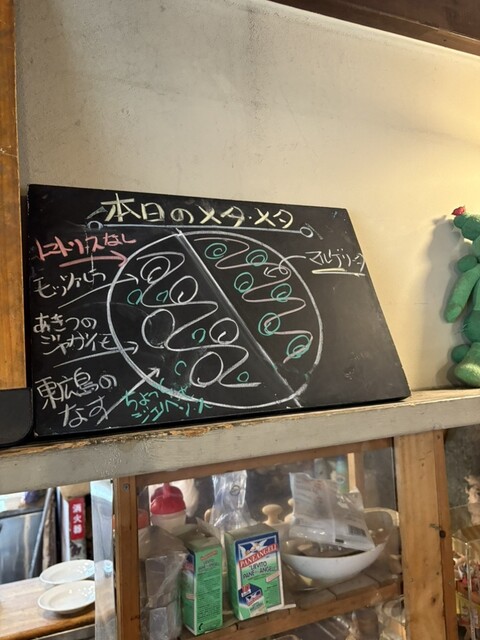 本日のメタ・メタ
トリスなし
モッツァレラ
マルゲリータ
あきつの
ジャガイモ
東広島の
なす
ちょっと
消火器
PANEANGELI
LIEVITO
PANE ANGELI